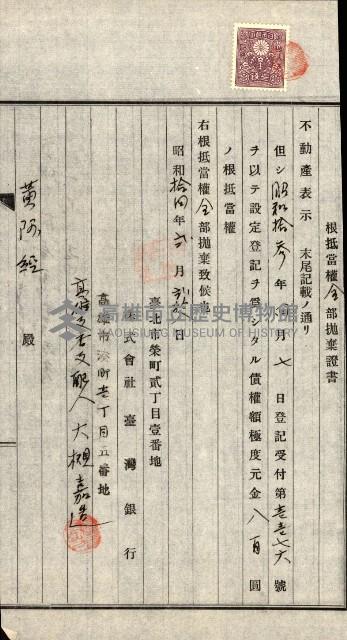 根抵當權全部拋棄證書
不動產表示 末尾記載ノ通リ
但シ昭和拾參年 月七日登記受付第壹壹七六號
ヲ以テ設定登記ヲ爲シタル債權額極度元金八百圓
ノ根抵當權
右根抵當權全部拋棄致候也
昭和拾四年貳月 日
臺北市榮町貳丁目壹番地
株式會社臺灣銀行
高雄市湊町壹丁目五番地
高雄支店支配人大槻嘉造
黃 經 殿
高雄市立歷史博物館
KAOHSIUNG MUSEUM OF HISTORY